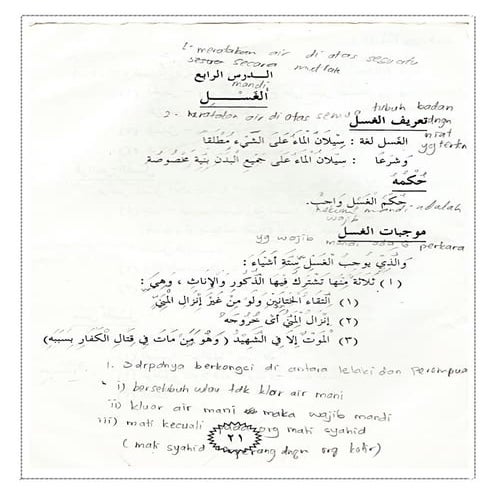 1- meratakan air di atas sesuatu
secara mutlak
الـدرس الرابع
mandi
الغسـل
2- meratakan air di atas semua tubuh badan
dngn
تعريف الغسل
niat
الغسل لغة : سيلان الماء على الشيء مطلقا
yg terten
وشرعا : سيلان الماء على جميع البدن بنية مخصوصة
حُكْمُهُ
حكم الغسل واجب.
hukum mandi adalah
wajib
موجبات الغسل
yg wajib mandi ada 6 perkara
والذي يوجب الغسل ستة أشياء :
(١) ثلاثة منها تشترك فيها الذكور والإناث ، وهي :
(١) التقاء الختانين ولو من غير إنزال المني
(٢) إنزال المني أى خروجه
(٣) الموت إلا في الشهيد ( وهو من مات في قتال الكفار بسببه)
1. 3 drpdnya berkongsi di antara lelaki dan Perempua
i) bersetubuh walau tdk kluar air mani
ii) kluar air mani maka wajib mandi
iii) mati kecuali pada org mati syahid
٢١
( mati syahid perang dngn org kafir)